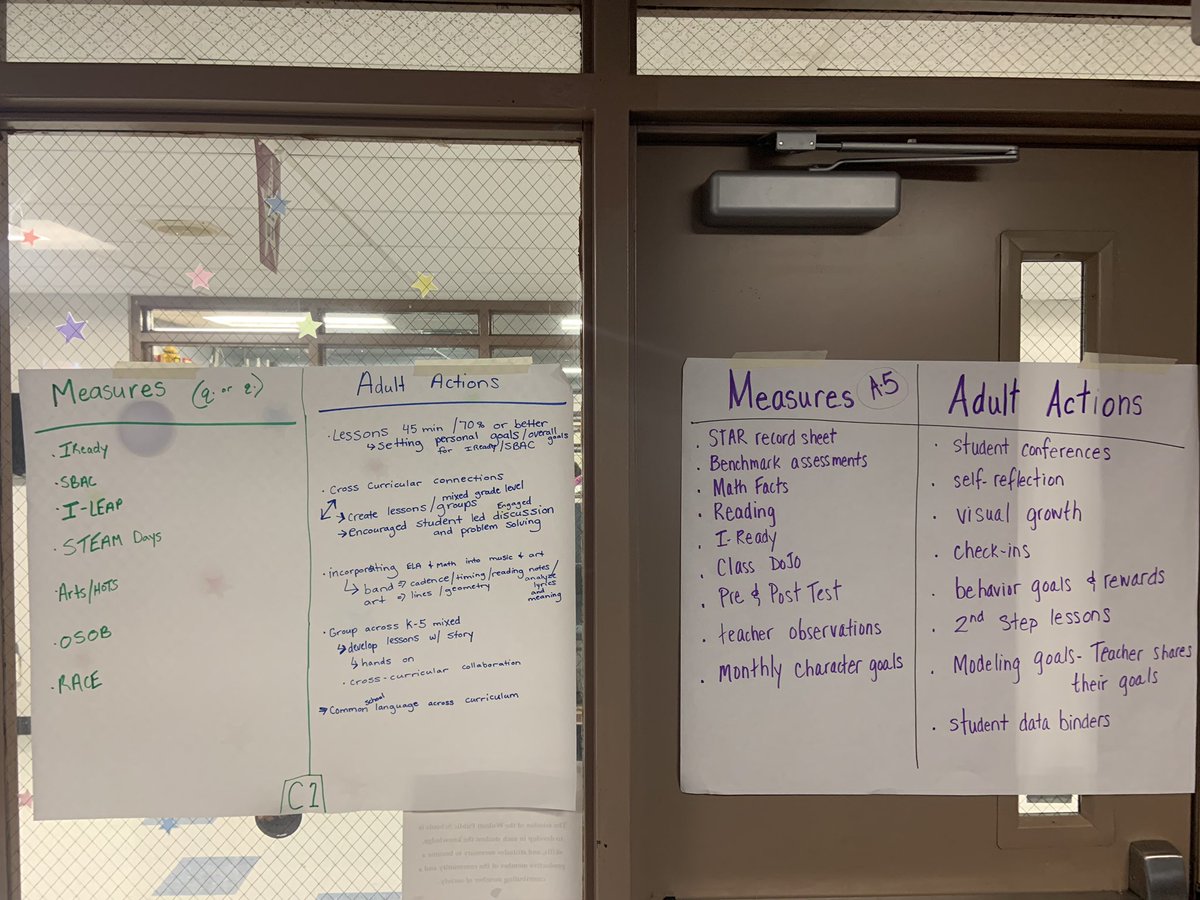 Measures (q. or q.)
IReady
SBAC
I-LEAP
STEAM Days
Arts/HOTS
OSOB
RACE
Adult Actions
Lessons 45 min/70% or better
↳ setting personal goals/overall goals
for IReady/SBAC
Cross curricular connections
→ Create lessons/mixed grade level groups
→ Encouraged student led Engaged discussion
and problem solving
incorporating ELA & Math into music & art
↳ band => cadence/timing/reading notes/analyze lyrics and meaning
art => lines/geometry
Group across K-5 mixed
↳ develop lessons w/ story
↳ hands on
cross-curricular collaboration
⇒ Common school language across curriculum
C1
Measures A.5
STAR record sheet
Benchmark assessments
Math Facts
Reading
I-Ready
Class DoJo
Pre & Post Test
teacher observations
Monthly character goals
Adult Actions
student conferences
self-reflection
visual growth
check-ins
behavior goals & rewards
2nd Step lessons
Modeling goals - Teacher shares
their goals
student data binders